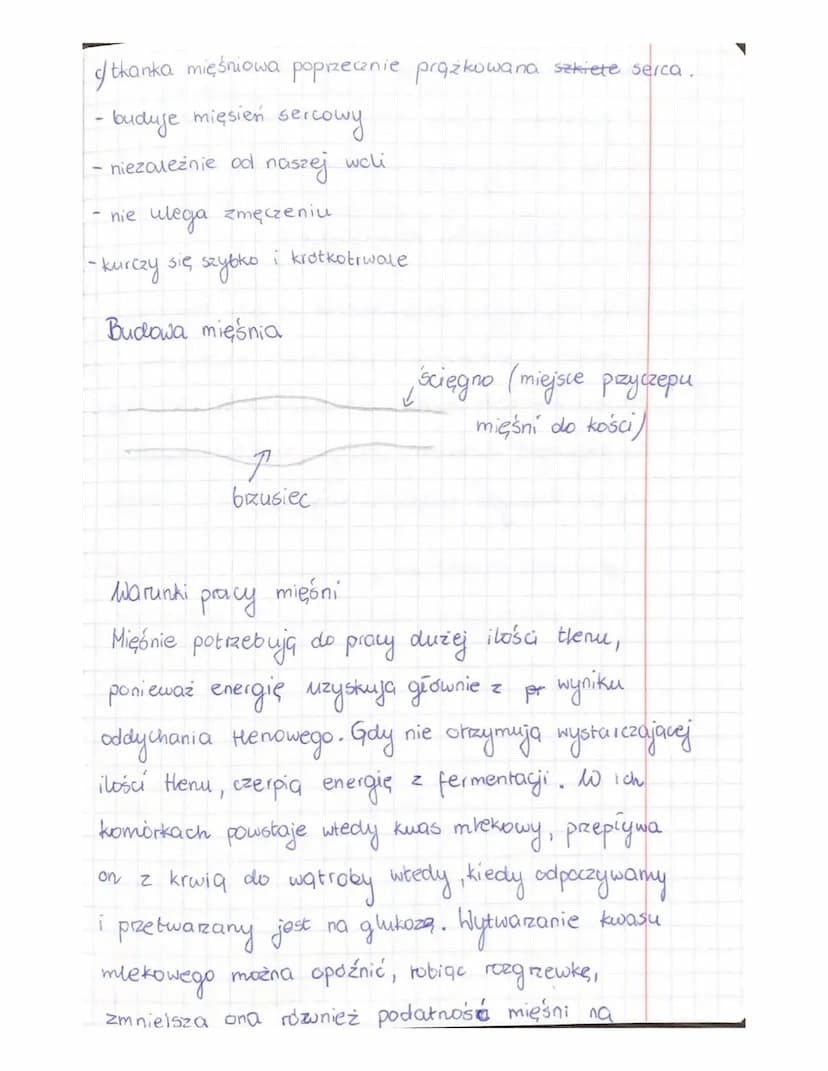 c) tkanka mięśniowa poprzecznie prążkowana szkiele serca.
- buduje mięsień sercowy
- niezależnie od naszej woli
- nie ulega zmęczeniu
- kurczy się szybko i krótkotrwale
Budowa mięśnia
ścięgno (miejsce przyczepu
mięśni do kości)
brzusiec
Warunki pracy mięśni
Mięśnie potrzebują do pracy dużej ilości tlenu,
ponieważ energię uzyskują głównie z pr wyniku
oddychania tlenowego. Gdy nie otrzymują wystarczającej
ilości tlenu, czerpią energię z fermentacji. W ich
komórkach powstaje wtedy kwas mlekowy, przepływa
on z krwią do wątroby wtedy, kiedy odpoczywamy
i przetwarzany jest na glukozę. Wytwarzanie kwasu
mlekowego można opóźnić, robiąc rozgrzewkę,
zmniejsza ona również podatność mięśni na